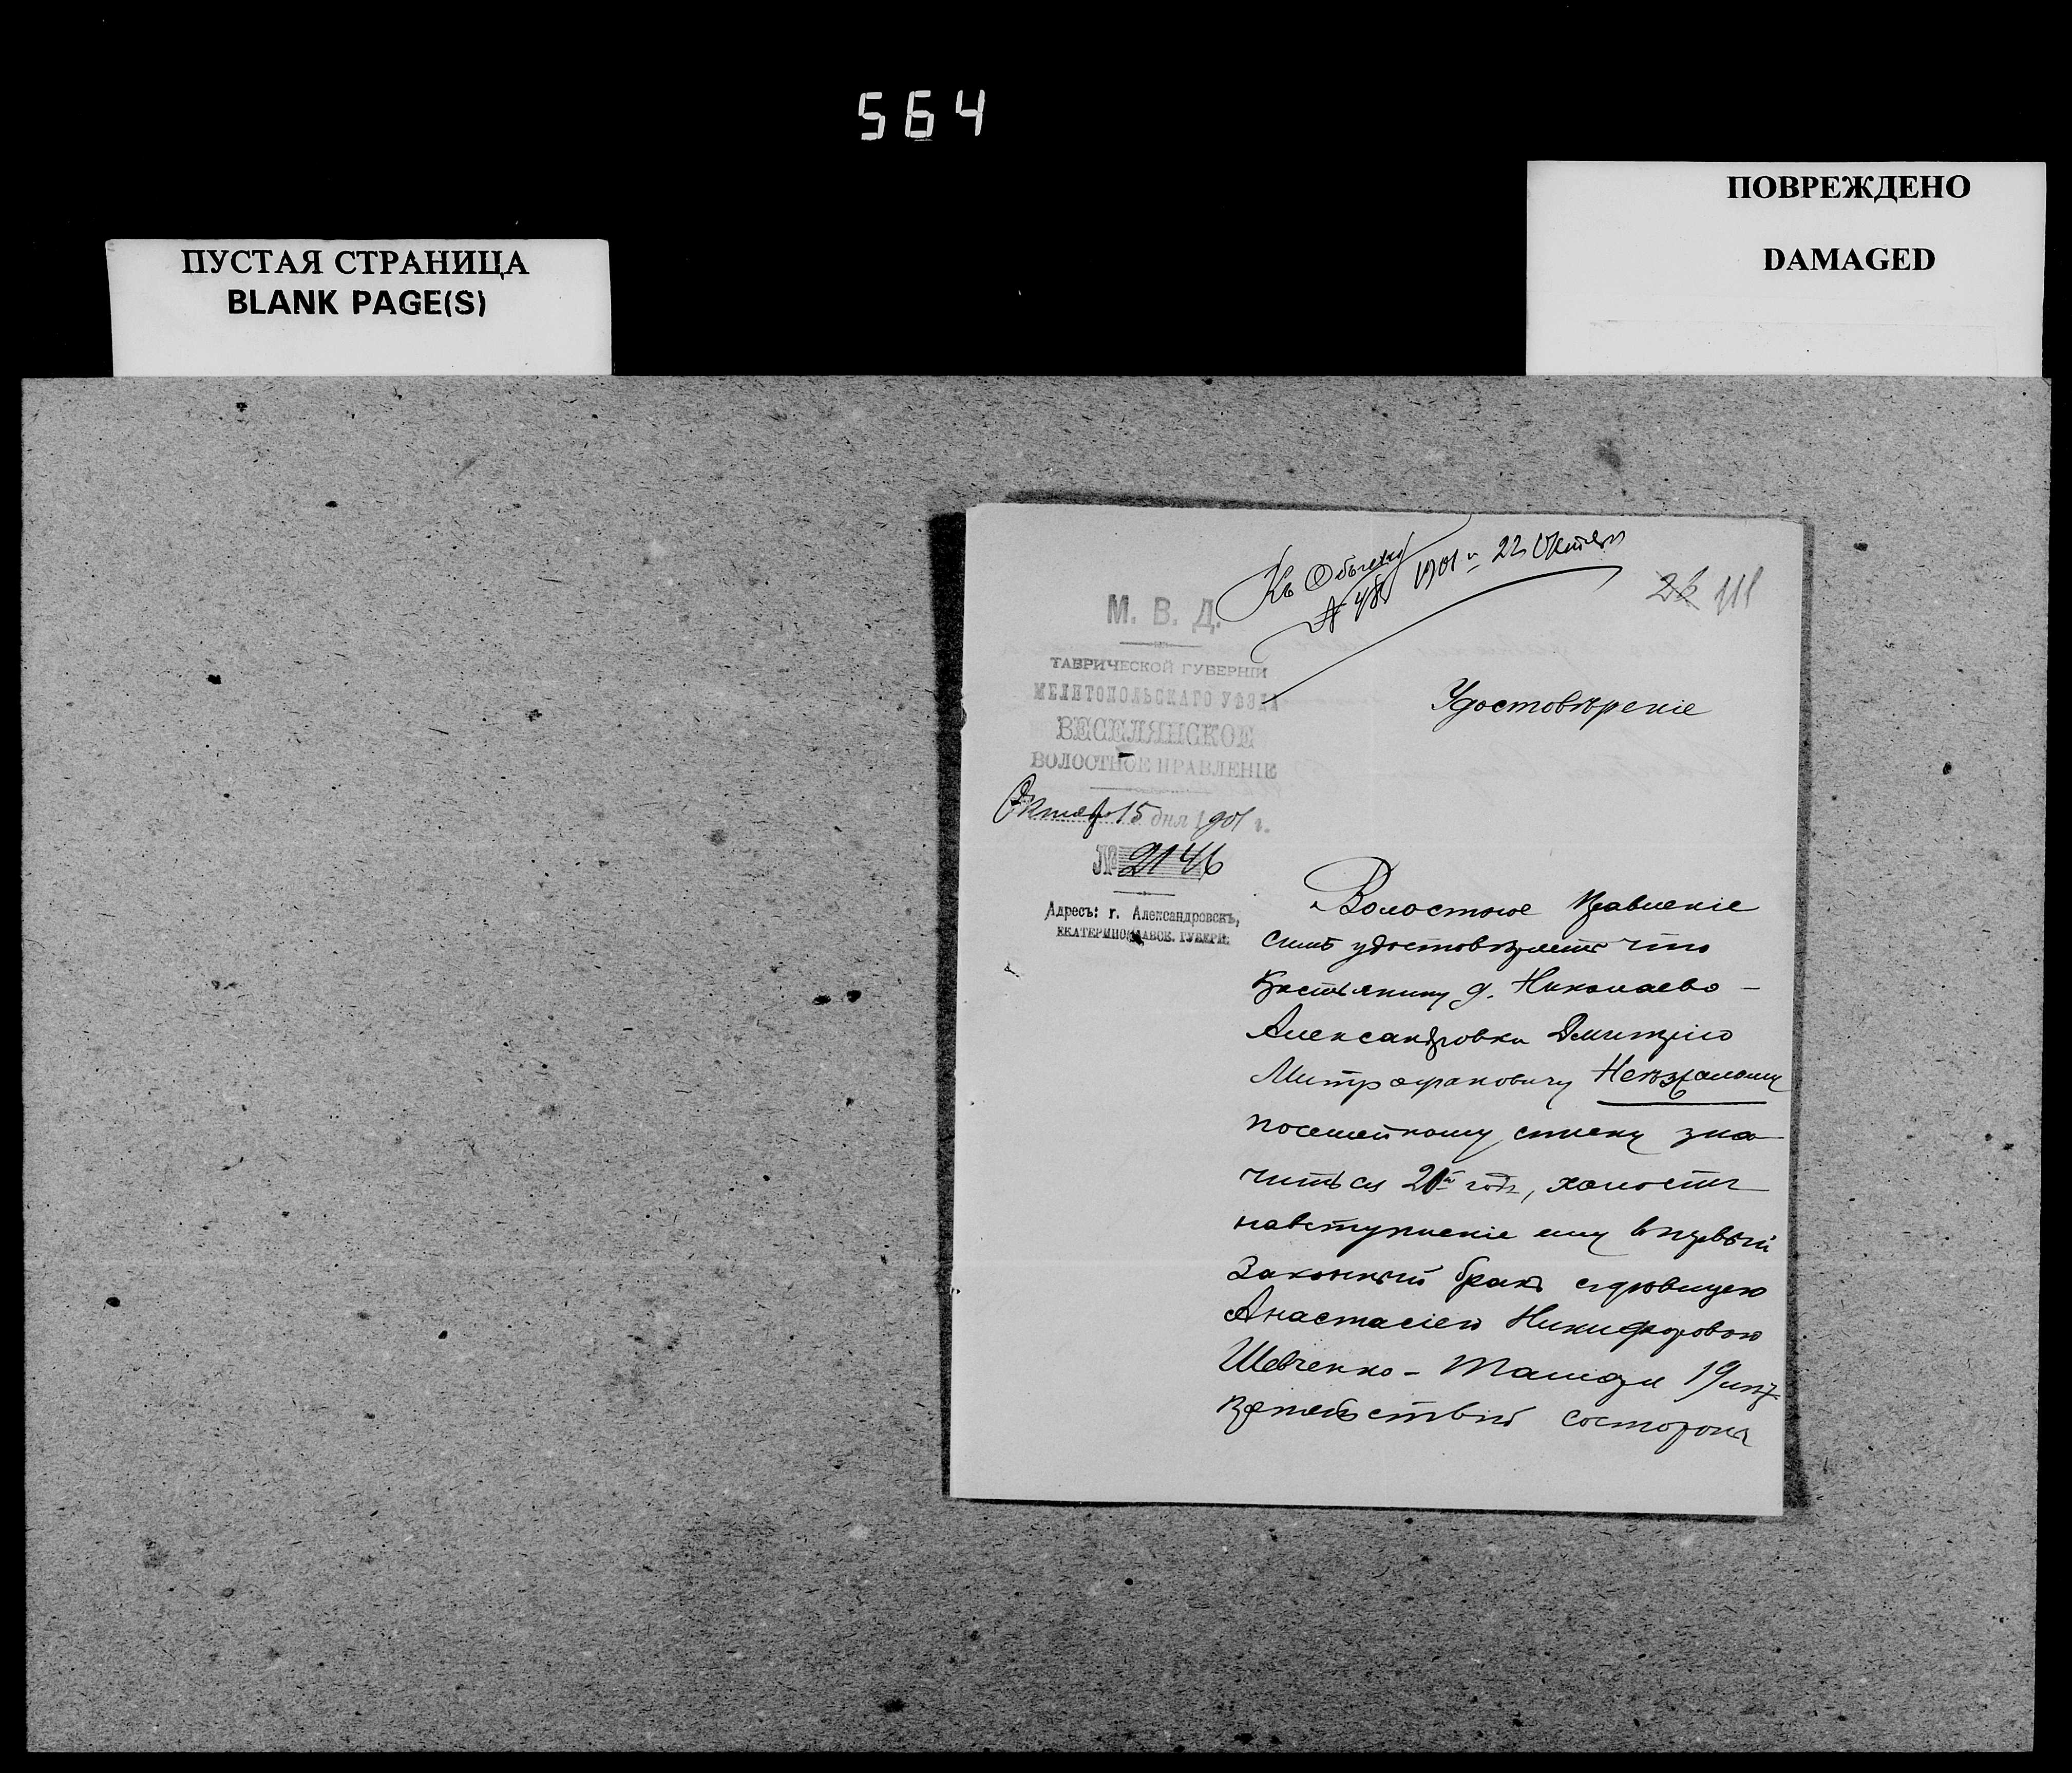 564
ПУСТАЯ СТРАНИЦА
BLANK PAGE(S)
ПОВРЕЖДЕНО
DAMAGED
Къ Обыску
№ 48 1901 г. 22 Октября
26 111
М. В. Д.
ТАВРИЧЕСКОЙ ГУБЕРНІИ
МЕЛИТОПОЛЬСКАГО УѢЗДА
ВЕСЕЛЯНСКОЕ
ВОЛОСТНОЕ ПРАВЛЕНІЕ
Октября 15 дня 1901 г.
№ 2146
Адресъ: г. Александровскъ,
ЕКАТЕРИНОСЛАВСК. ГУБЕРН.
Удостовѣреніе
Волостное Правленіе
симъ удостовѣряетъ что
Крестьянину д. Николаево-
Александровки Дмитрію
Митрофановичу
посемейному списку зна
читься 21й годъ, холостъ
навступленіе ему в первый
Законный бракъ сдѣвицею
Анастасіею Никифоровою
Шевченко - 19 лѣт
препятствій состороны